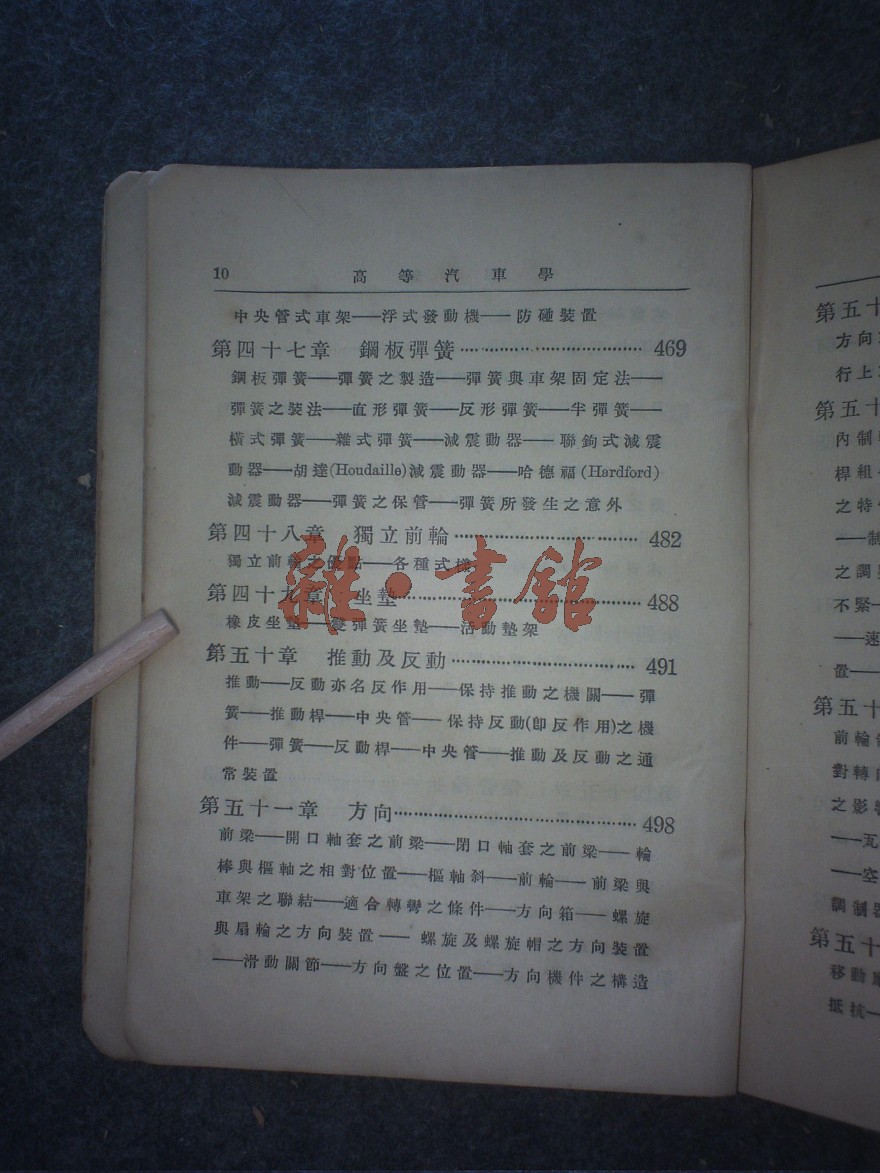 10 高等汽車學
中央管式車架——浮式發動機——防碰裝置
第四十七章 鋼板彈簧 469
鋼板彈簧——彈簧之製造——彈簧與車架固定法——
彈簧之裝法——直形彈簧——反形彈簧——半彈簧——
橫式彈簧——雜式彈簧——減震動器——聯鉤式減震
動器——胡達(Houdaille)減震動器——哈德福(Hardford)
減震動器——彈簧之保管——彈簧所發生之意外
第四十八章 獨立前輪 482
獨立前輪之優點——各種式樣
第四十九章 坐墊 488
橡皮坐墊——雙彈簧坐墊——活動墊架
第五十章 推動及反動 491
推動——反動亦名反作用——保持推動之機關——彈
簧——推動桿——中央管——保持反動(即反作用)之機
件——彈簧——反動桿——中央管——推動及反動之通
常裝置
第五十一章 方向 498
前梁——開口軸套之前梁——閉口軸套之前梁——輪
棒與樞軸之相對位置——樞軸斜——前輪——前梁與
車架之聯結——適合轉彎之條件——方向箱——螺旋
與扇輪之方向裝置——螺旋及螺旋帽之方向裝置
——滑動關節——方向盤之位置——方向機件之構造
雜·書館
第五十
方向
行上
第五十
內制
桿組
之特
——制
之調
不緊——
——速
置——
第五十
前輪
對轉
之影
——瓦
——空
調制器
第五十
移動
抵抗——